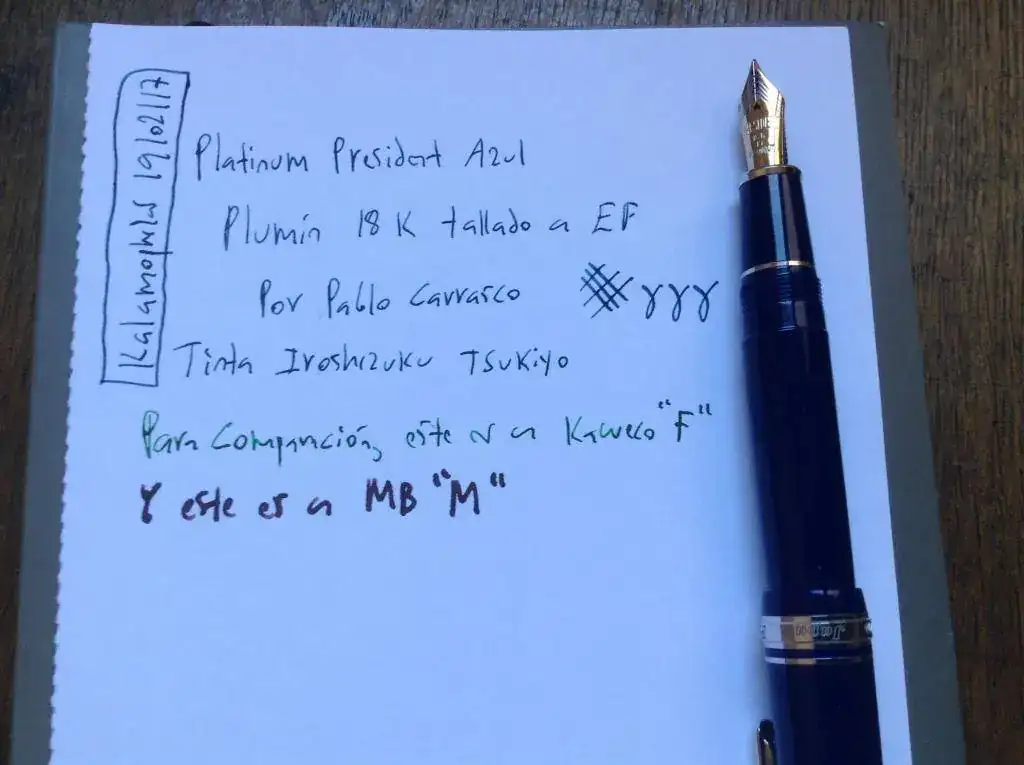 Kalamophilos 19/02/17
Platinum President Azul
Plumín 18 K tallado a EF
Por Pablo Carrasco
Tinta Iroshizuku TSUKIYO
Para Comparación, este es a Kaweco "F"
Y este es a MB "M"